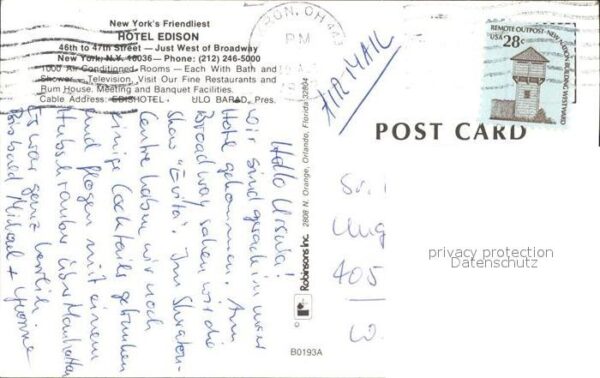 New York's Friendliest
HOTEL EDISON
46th to 47th Street — Just West of Broadway
New York, N.Y. 10036 — Phone: (212) 246-5000
1000 Air-Conditioned Rooms — Each With Bath and
Shower — Television, Visit Our Fine Restaurants and
Rum House. Meeting and Banquet Facilities.
Cable Address: EDISHOTEL ULO BARAD, Pres.
OH
PM
AIR MAIL
REMOTE OUTPOST · NEW NATION BUILDING WESTWARD
USA 28c
POST CARD
Hallo Ursula!
wir sind gerade in unser
Hotel gekommen. Am
Broadway sahen wir die
Show "Evita". Im Sheraton-
Centre haben wir noch
einige Cocktails getrunken
und flogen mit einem
Hubschrauber über Manhattan
Es war ganz herrlich.
Bis bald Michael + Yvonne
Robinsons Inc. 2808 N. Orange, Orlando, Florida 32804
B0193A
Sr.
Ung
405
W.
privacy protection
Datenschutz